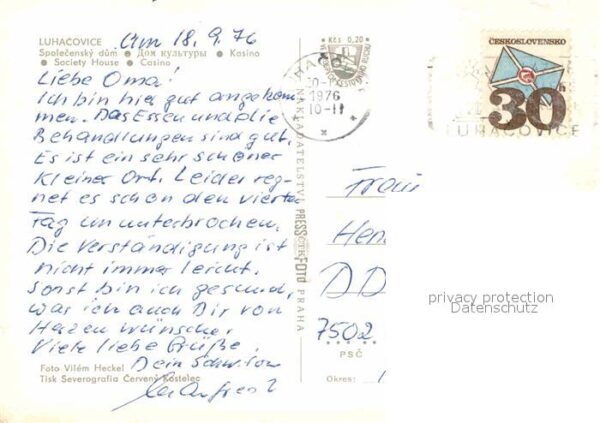 LUHAČOVICE
Am 18.9.76
Společenský dům ● Дом культуры ● Kasino
● Society House ● Casino
Liebe Oma!
Ich bin hier gut angekom
men. Das Essen und die
Behandlungen sind gut.
Es ist ein sehr schöner
kleiner Ort. Leider reg-
net es schon den vierten
Tag ununterbrochen.
Die Verständigung ist
nicht immer leicht.
Sonst bin ich gesund,
was ich auch Dir von
Herzen wünsche.
Viele liebe Grüße.
Dein
Foto Vilém Heckel
Tisk Severografia Červený Kostelec
Kčs 0,20
NAKLADATELSTVÍ PRESSFOTO PRAHA
ČTK
1976
10-11
ČESKOSLOVENSKO
30h
LUHAČOVICE
Frau
Hen
DD
7502
PSČ
Okres:
privacy protection
Datenschutz